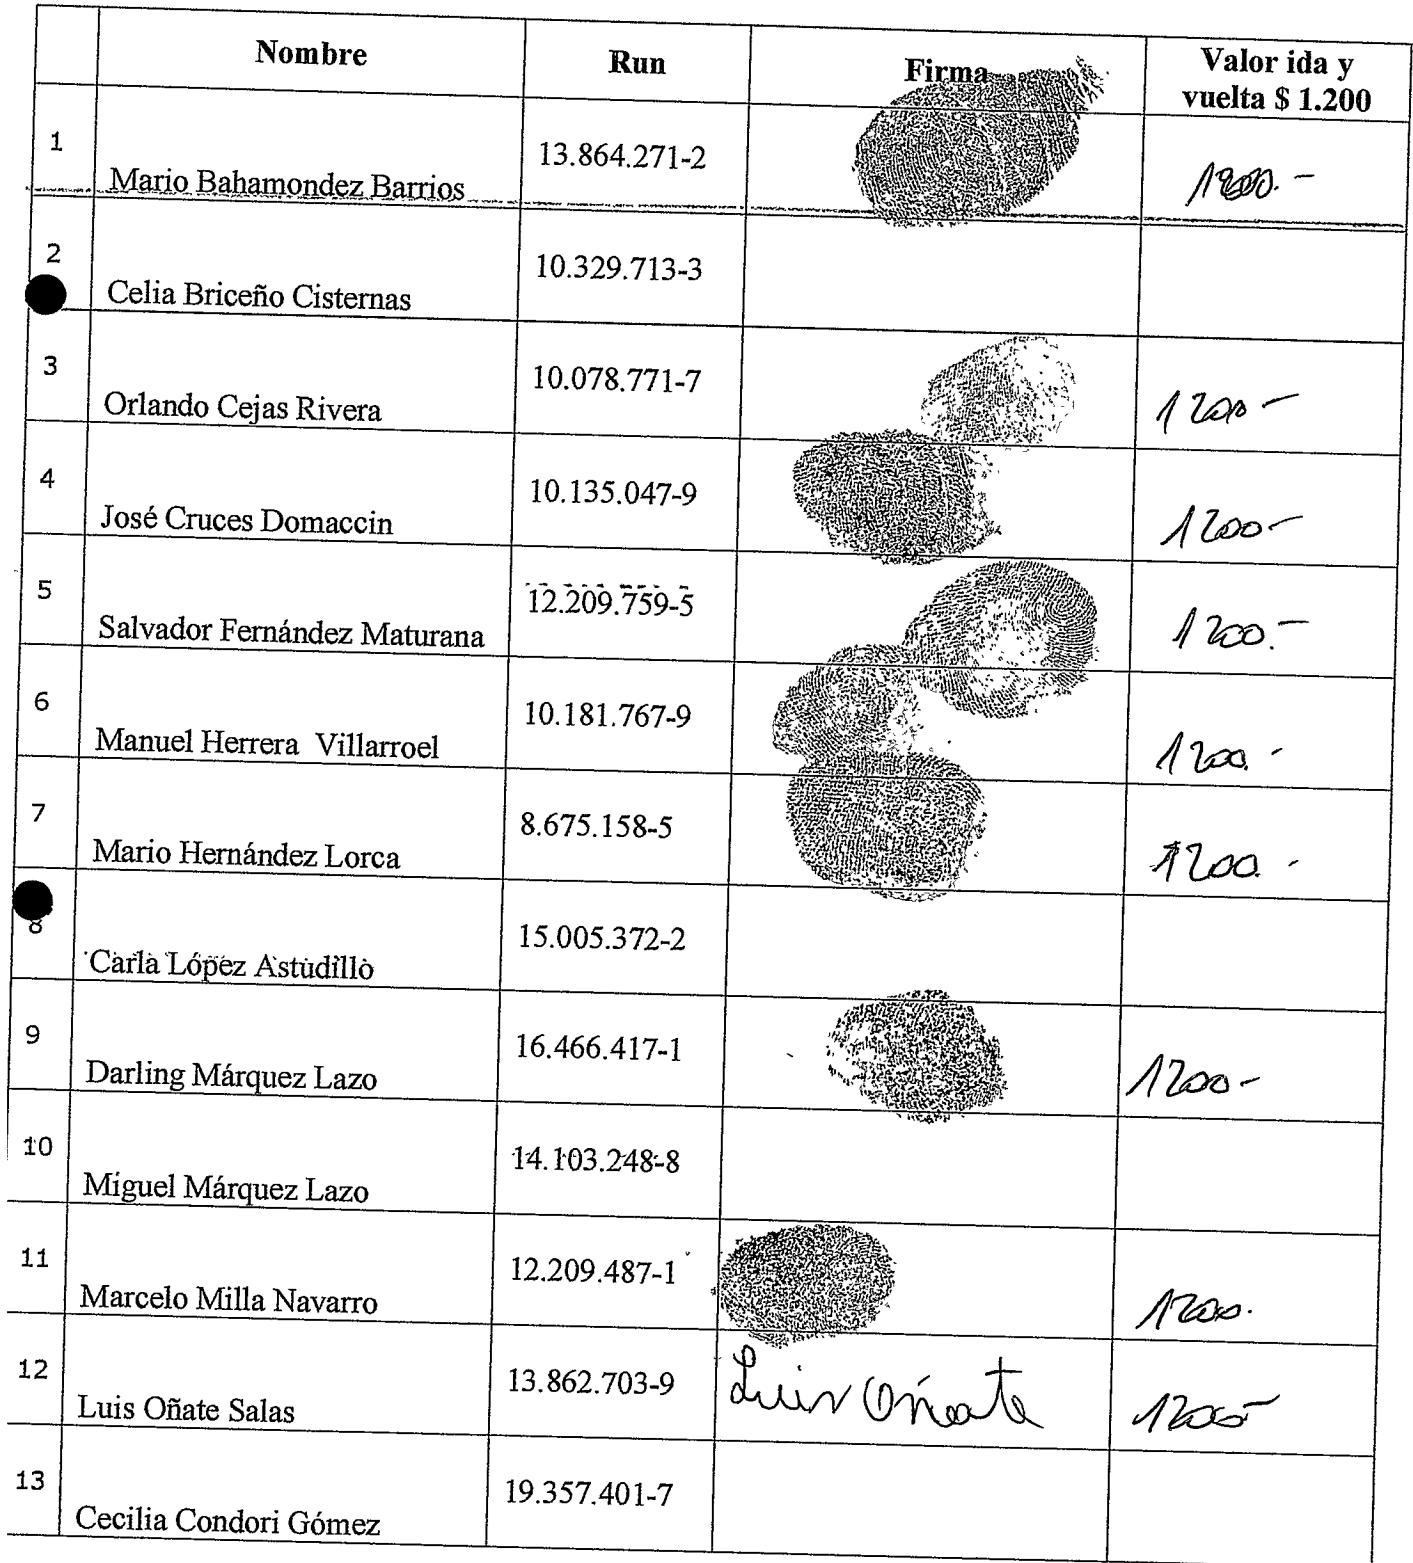 Nombre Run Firma Valor ida y
vuelta $ 1.200
1 Mario Bahamondez Barrios 13.864.271-2 1200.-
2 Celia Briceño Cisternas 10.329.713-3
3 Orlando Cejas Rivera 10.078.771-7 1200-
4 José Cruces Domaccin 10.135.047-9 1200-
5 Salvador Fernández Maturana 12.209.759-5 1200.-
6 Manuel Herrera Villarroel 10.181.767-9 1200.-
7 Mario Hernández Lorca 8.675.158-5 1200.-
8 Carla López Astudillo 15.005.372-2
9 Darling Márquez Lazo 16.466.417-1 1200-
10 Miguel Márquez Lazo 14.103.248-8
11 Marcelo Milla Navarro 12.209.487-1 1200.
12 Luis Oñate Salas 13.862.703-9 Luis Oñate 1200-
13 Cecilia Condori Gómez 19.357.401-7